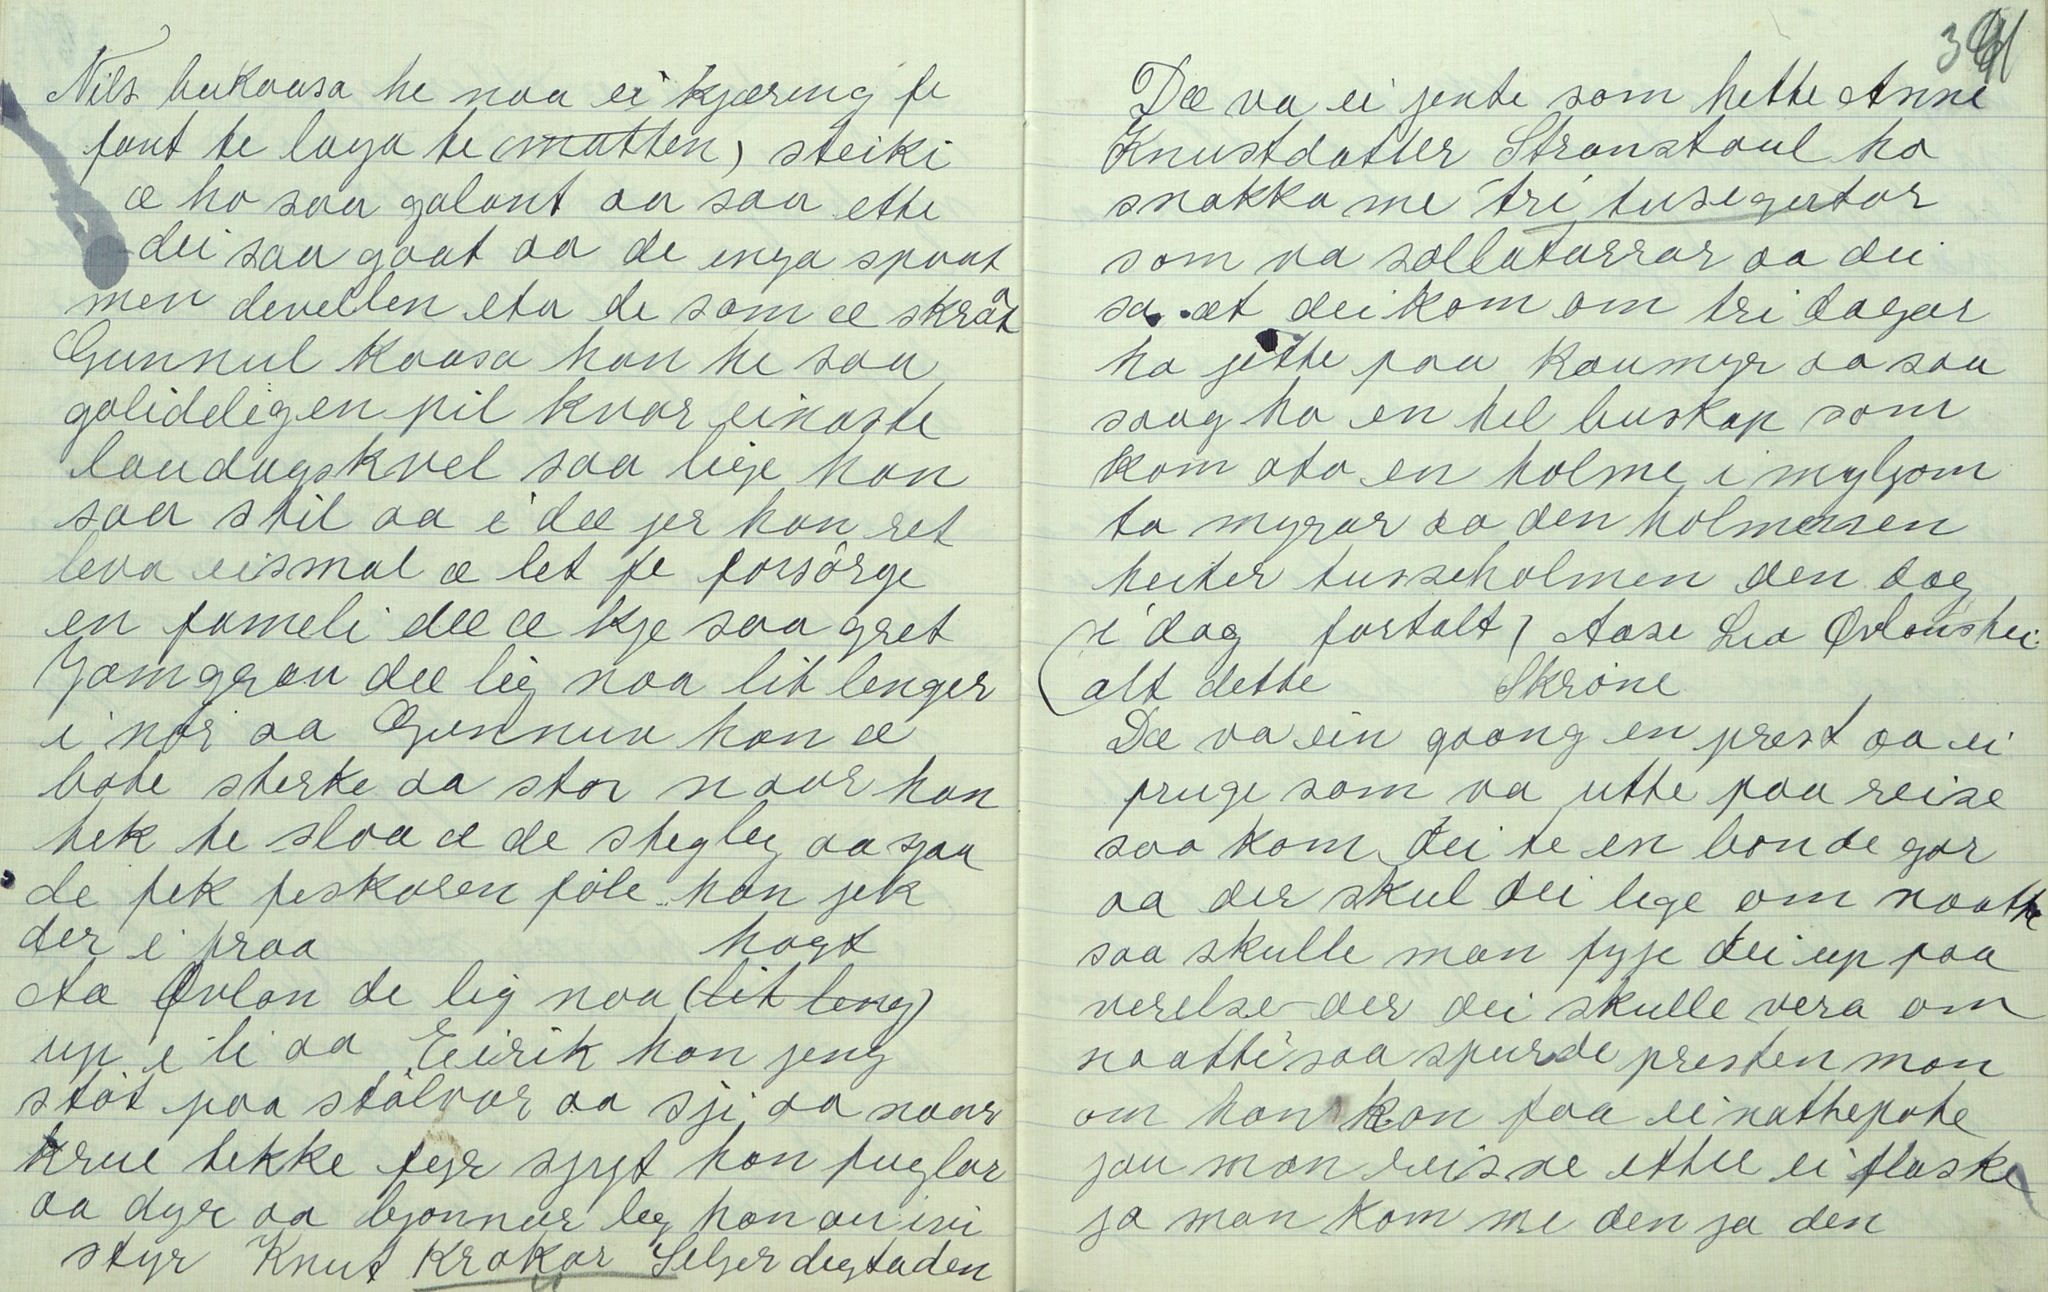 Nils bukaasa he noa ei kjæring fe
fant te laga te (matten) steiki
æ ho saa galant aa saa ette
dei saa gaat aa de enga spaat
men devellen eta de som æ skråt
Gunnul Kaasa han he saa
galiddeligen pil kvar einaste
laudagskvel saa lige han
saa stil aa i dæ jer han ret
leva eismal æ let fe forsörge
en fameli dæ æ kje saa gret
Jamgrau dæ lig noa lit lenger
i nör aa Gunnuv han æ
bate sterke aa stor naar han
tek te sloa æ de stegleg aa sjaa
de fek feskaren föle han jek
der i fraa
hagt
Aa Øvlan de lig noa (lit leng)
up i li aa Eeirik han jeng
støt paa stålvar aa sji aa naar
krue tekke fyr sjyt han fuglar
aa dyr aa bjonnar leg han au ivi
styr Knut Krakar Seljerdegtaden
391
Dæ va ei jente som hette Anne
Knustdatter Stranstaul ho
snakka me tri tusegutar
som va sollatarrar aa dei
sa at dei kom om tri dagar
ho jette paa Kaumyr aa saa
saag ho en hel buskap som
kom ata en holme i myljom
to myrar aa den holmensen
heiter tusseholmen den dag
i dag fortalt) Aase Lia Øvlanshei.
(alt dette Skröne
Dæ va ein goong en prest aa ei
fruge som va utte paa reise
saa kom dei te en bonde gar
aa der skul dei lege om naatte
saa skulle man fyje dei up paa
verelse der dei skulle vera om
naatte saa spurde presten man
om han kan faa ei nattepote
jau man reisne ettee ei flaske
ja man kom me den ja den